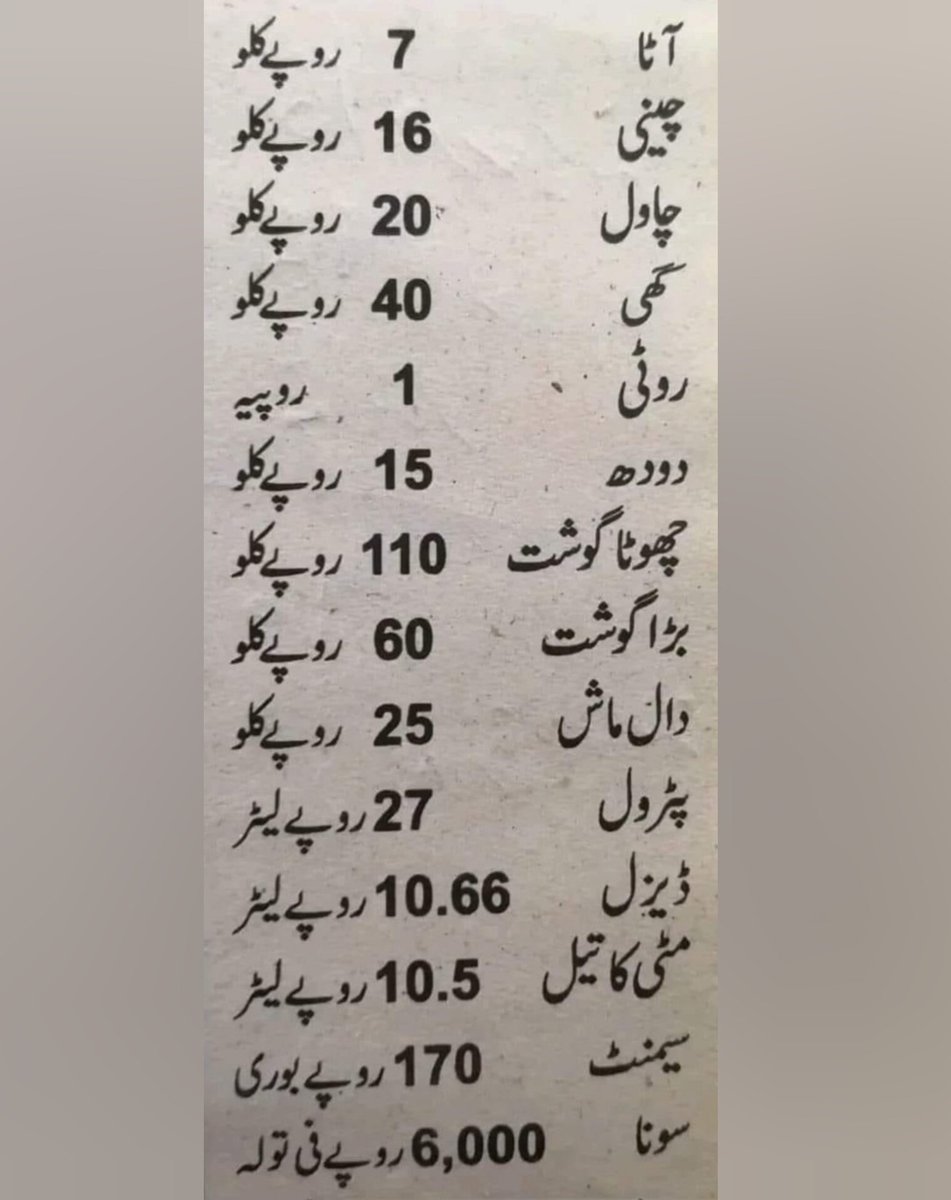 آٹا 7 روپے کلو
چینی 16 روپے کلو
چاول 20 روپے کلو
گھی 40 روپے کلو
روٹی 1 روپیہ
دودھ 15 روپے کلو
چھوٹا گوشت 110 روپے کلو
بڑا گوشت 60 روپے کلو
دال ماش 25 روپے کلو
پٹرول 27 روپے لیٹر
ڈیزل 10.66 روپے لیٹر
مٹی کا تیل 10.5 روپے لیٹر
سیمنٹ 170 روپے بوری
سونا 6,000 روپے فی تولہ